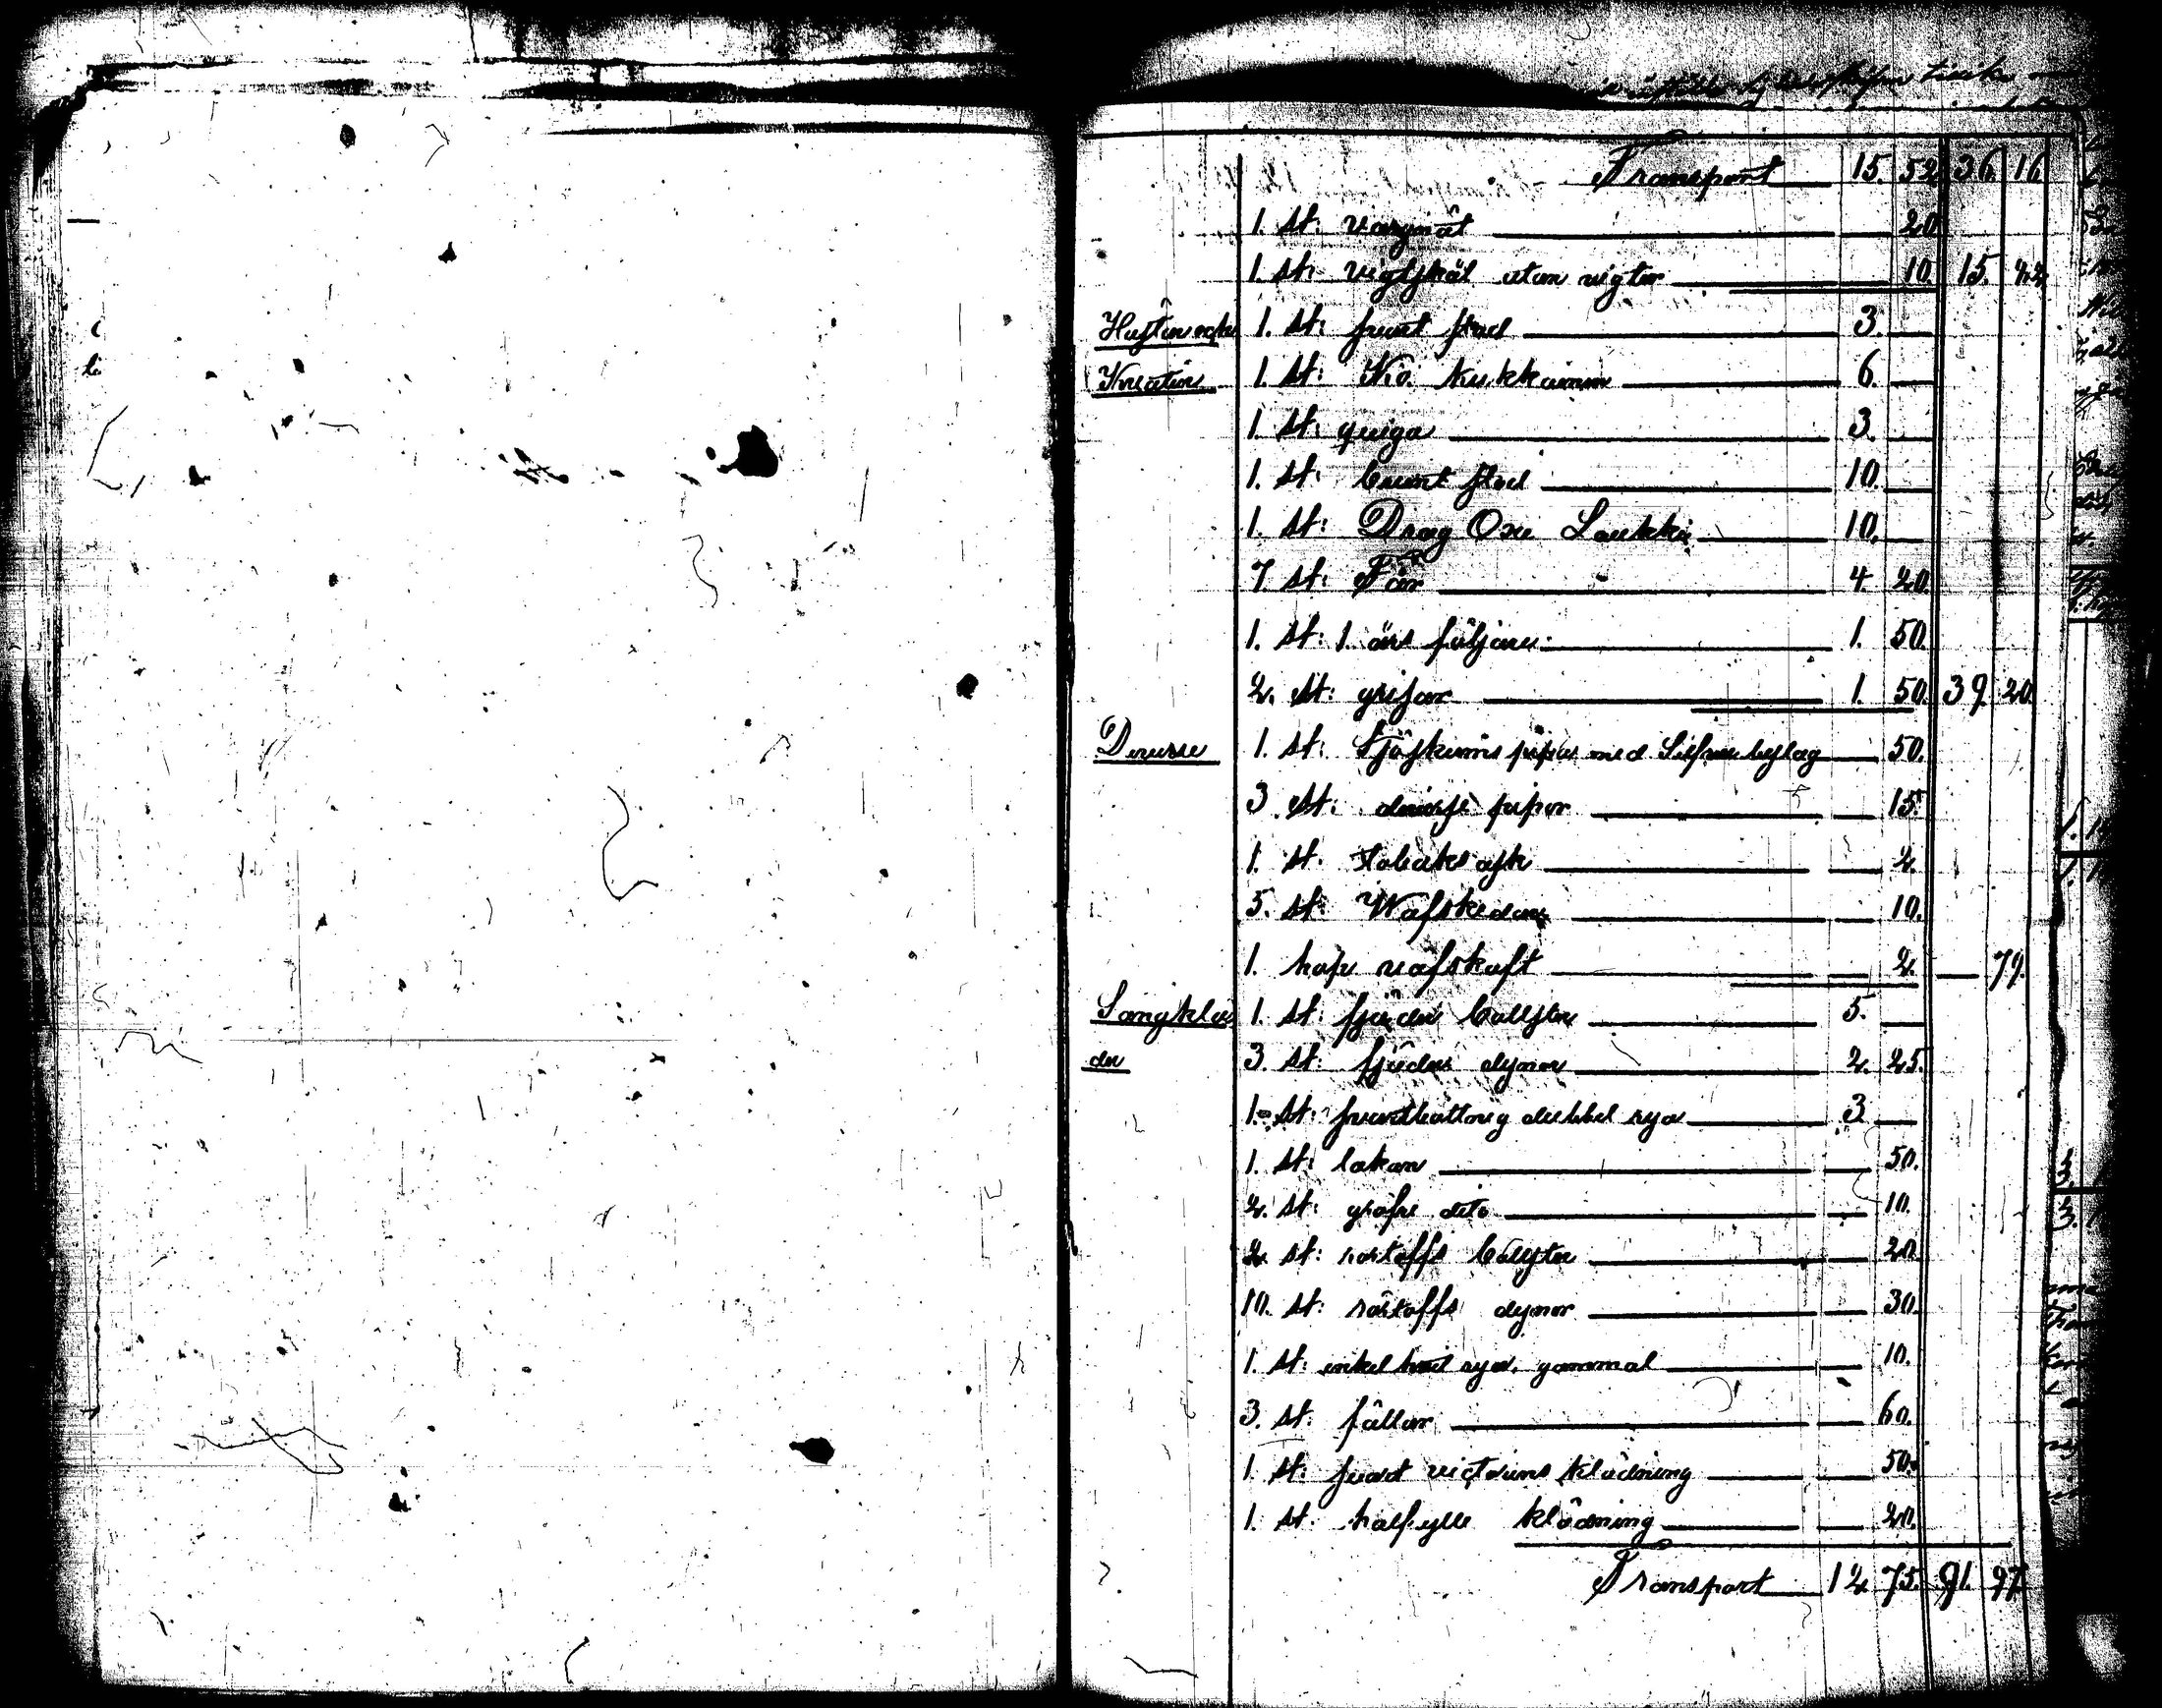 Transport 15. 52 36. 16.
1. st: vargnät 20
1. st: vigtskål utan vigter 10. 15. 82
1. st: svart stod 3.
Kreatur 1. st: Ko. Kukkamm 6.
1. st: qviga 3.
1. st: brunt stod 10.
1. st: Drag Oxe Laukki 10.
7. st: Får 4. 20.
1. st: 1. års följare 1. 50.
2. st: grisar 1. 50. 39. 20.
Diverse 1. st: Sjöskums pipa med Silfver beslag 50.
3. st: diverse pipor 15.
1. st: Tobaks ask 2.
5. st: Wäfskedar 10.
1. hop väfskaft 2. 79.
Sängklä 1. st: fjäder bolster 5.
der 3. st: fjäder dynor 2. 25.
1. st: dubbel rya 3
1. st: lakan 50.
2. st: grofve dito 10.
2. st: rötaffs bolster 20.
10. st: rötaffs dynor 30.
1. st: enkel rya gammal 10.
3. st: fällar 60.
1. st: svart klädning 50.
1. st: halfylle klädning 20.
Transport 12 75. 91. 97